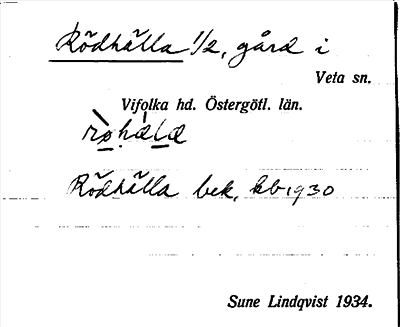 Rödhälla 1/2, gård i
Veta sn.
Vifolka hd. Östergötl. län.
Rödhälla bek. kb 1930
Sune Lindqvist 1934.